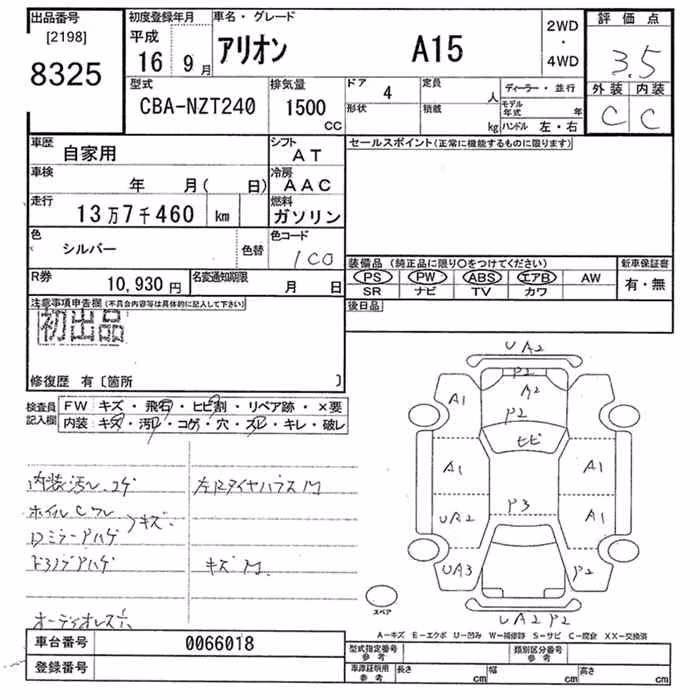 出品番号 初度登録年月 車名・グレード 評価点
[2198] 平成 2WD
8325 16年 9月 アリオン A15 ・ 3.5
4WD
型式 排気量 ドア 4 定員 人 ディーラー・並行 外装 内装
CBA-NZT240 1500 CC 形状 積載 kg モデル年式 年 C C
ハンドル 左・右
車歴 自家用 シフト AT セールスポイント(正常に機能するものに限ります)
車検 年 月( 日) 冷房 AAC
走行 13万7千460 km 燃料 ガソリン
色 シルバー 色替 色コード 1C0 装備品 (純正品に限り○をつけてください) 新車保証書
PS PW ABS エアB AW 有・無
R券 10,930円 名変通知期限 月 日 SR ナビ TV カワ
注意事項申告欄(不具合内容等は具体的に記入して下さい) 後日品
初出品
修復歴 有〔箇所 〕
検査員 FW キズ・飛石・ヒビ割・リペア跡・×要
記入欄 内装 キズ・汚レ・コゲ・穴・スレ・キレ・破レ
UA2
P2
A1 A2
P2
ヒビ
A1 A1
P3
UA2 A1
UA3 P2
UA2 P2
内装汚レ コゲ 左Rタイヤハウス M
ホイルCワレ
キズ
Dミラーハゲ
ドアノブハゲ キズ M
オーディオレス
スペア
A－キズ E－エクボ U－凹み W－補修跡 S－サビ C－腐食 XX－交換済
車台番号 0066018
登録番号
型式指定番号 参考 類別区分番号 参考
車庫証明用 参考 長さ cm 幅 cm 高さ cm